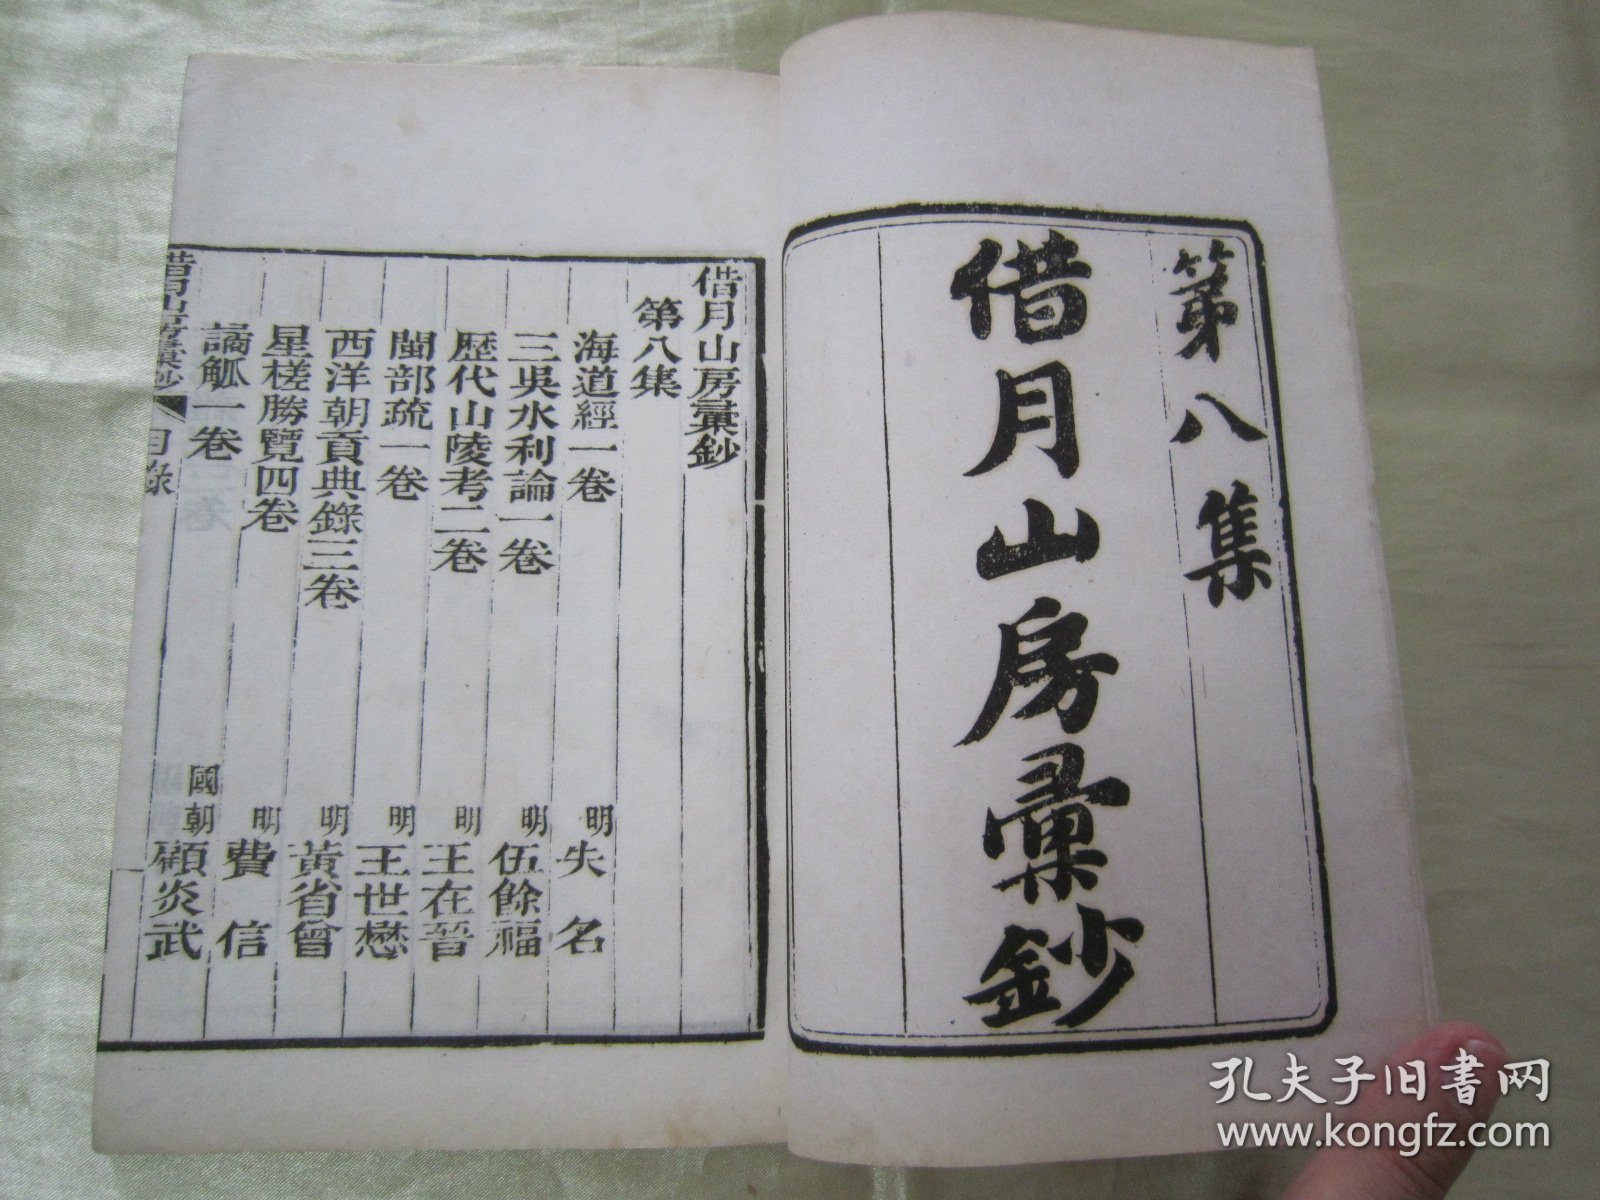 第八集
借月山房彙鈔
借月山房彙鈔
第八集
海道經一卷 明 失名
三吳水利論一卷 明 伍餘福
歷代山陵考二卷 明 王在晉
閩部疏一卷 明 王世懋
西洋朝貢典錄三卷 明 黃省曾
星槎勝覽四卷 明 費信
譎觚一卷 國朝 顧炎武
借月山房彙鈔 目錄
孔夫子旧书网
www.kongfz.com